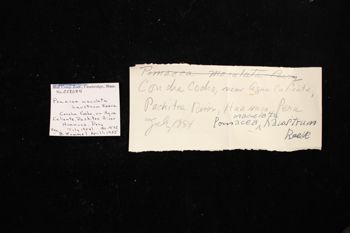 Mus. Comp. Zool., Cambridge, Mass.
Pomacea maculata
haustrum Reeve
Concha Codo, nr. Agua
Caliente, Pachitea River
Huanuco, Peru
July 1954
Pomacea maculata Perry
Concha Codo, near Agua Caliente,
Pachitea River, Huanuco, Peru
July 1954
maculata
Pomacea haustrum
Reeve